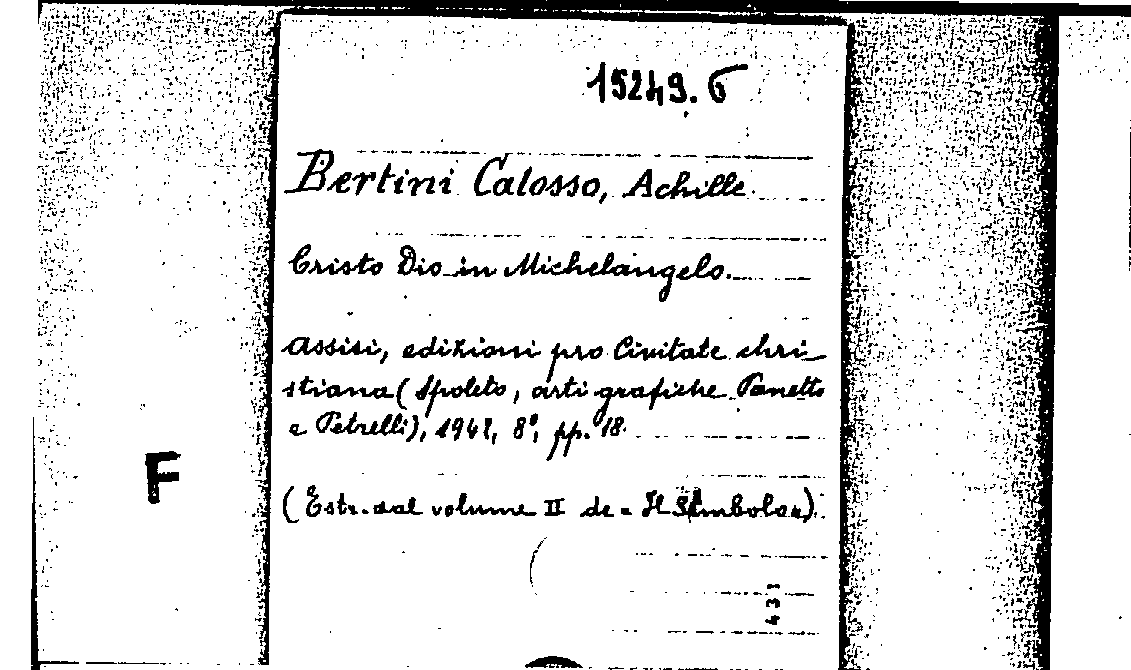 15249.6
Bertini Calosso, Achille.
Cristo Dio in Michelangelo.
Assisi, edizioni pro Civitate chri-
stiana (Spoleto, arti grafiche Panetto
e Petrelli), 1942, 8°, pp. 18.
(Estr. dal volume II de "Il Simbolo").
F
431